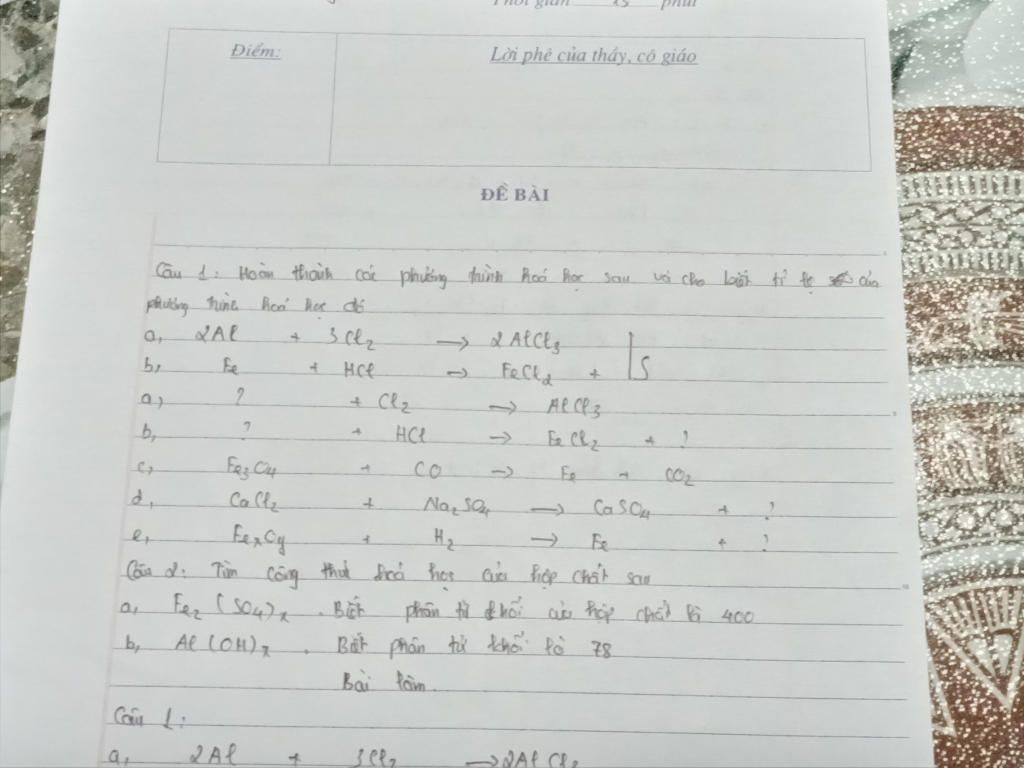 Thời gian 15 phút
Điểm:
Lời phê của thầy, cô giáo
ĐỀ BÀI
Câu 1: Hoàn thành các phương trình hoá học sau và cho biết tỉ lệ của
phương trình hoá học đó
a, 2Al + 3Cl₂ → 2AlCl₃
b, Fe + HCl → FeCl₂ + | S
a, ? + Cl₂ → AlCl₃
b, ? + HCl → FeCl₂ + ?
c, Fe₃O₄ + CO → Fe + CO₂
d, CaCl₂ + Na₂SO₄ → CaSO₄ + ?
e, FeₓOy + H₂ → Fe + ?
Câu 2: Tìm công thức hoá học của hợp chất sau
a, Fe₂(SO₄)ₓ. Biết phân tử khối của hợp chất là 400
b, Al(OH)ₓ. Biết phân tử khối là 78
Bài làm.
Câu 1:
a, 2Al + 3Cl₂ → 2AlCl₃